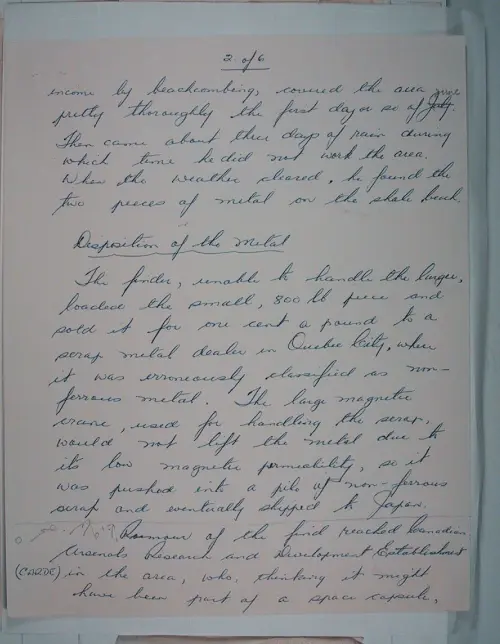 2 of 6
income by beachcombing, covered the area June
pretty thoroughly the first day or so of July.
Then came about three days of rain during
which time he did not work the area.
When the weather cleared, he found the
two pieces of metal on the shale beach.
Disposition of the Metal
The finder, unable to handle the larger,
loaded the small, 800 lb piece and
sold it for one cent a pound to a
scrap metal dealer in Quebec City, where
it was erroneously classified as non-
ferrous metal. The large magnetic
crane, used for handling the scrap,
would not lift the metal due to
its low magnetic permeability, so it
was pushed into a pile of non-ferrous
scrap and eventually shipped to Japan.
Rumour of the find reached Canadian
Arsenals Research and Development Establishment
(CARDE) in the area, who, thinking it might
have been part of a space capsule,